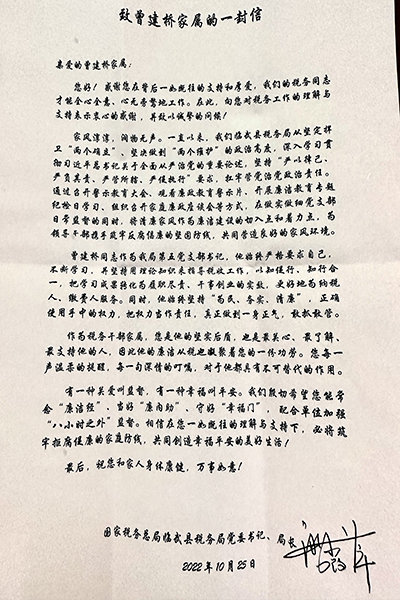 致曾建桥家属的一封信
亲爱的曾建桥家属：
您好！感谢您在背后一如既往的支持和厚爱，我们的税务同志
才能全心全意、心无旁骛地工作。在此，向您对税务工作的理解与
支持表示衷心的感谢，并致以诚挚的问候！
家风淳淳，润物无声。一直以来，我们临武县税务局从坚定捍
卫“两个确立”、坚决做到“两个维护”的政治高度，深入学习贯
彻习近平总书记关于全面从严治党的重要论述，坚持“严以律己、
严负其责、严管所辖、严保执行”要求，扛牢管党治党政治责任。
通过召开警示教育大会、观看廉政教育警示片、开展廉洁教育专题
纪检日学习、组织召开家属廉政座谈会等方式，在做实做细党支部
日常监督的同时，将清廉家风作为廉洁建设的切入点和着力点，为
领导干部携手筑牢反腐倡廉的坚固防线，共同营造良好的家风环境。
曾建桥同志作为我局第五党支部书记，他始终严格要求自己，
不断学习，并坚持用理论知识来指导税收工作，以知促行、知行合
一，把学习成果转化为履职尽责、干事创业的实效，更好地为纳税
人、缴费人服务。同时，他始终坚持“为民、务实、清廉”，正确
使用手中的权力，把权力当作责任，真正做到一身正气，敢抓敢管。
作为税务干部家属，您是他的坚实后盾，也是最关心、最了解、
最支持他的人，因此他的廉洁从税也凝聚着您的一份功劳。您每一
声温柔的提醒，每一句深情的叮嘱，对于他都具有不可替代的作用。
有一种关爱叫监督，有一种幸福叫平安。我们殷切希望您能常
念“廉洁经”、当好“廉内助”、守好“幸福门”，配合单位加强
“八小时之外”监督。相信在您一如既往的理解与支持下，必将筑
牢拒腐倡廉的家庭防线，共同创造幸福平安的美好生活！
最后，祝您和家人身体康健，万事如意！
国家税务总局临武县税务局党委书记、局长
2022年10月25日